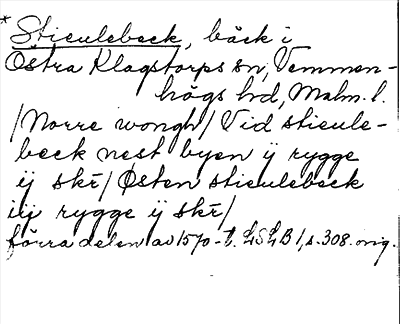 * Stieulebeck, bäck i
Östra Klagstorps sn, Vemmen-
högs hd, Malm. l.
/Norre wongh/ Vid stieule-
beck nest byen ÿ rygge
ÿ skr̄/ Østen stieulebeck
iÿ rygge ÿ skr̄/
förra delen av 1570-t. LSLB 1, s. 308. orig.